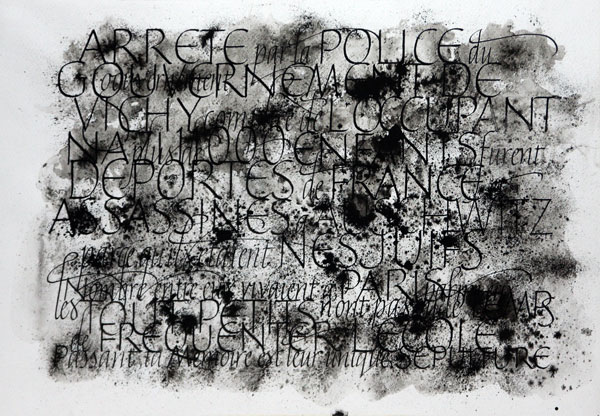 ARRETE par la POLICE du
GOUVERNEMENT DE
VICHY complice de L'OCCUPANT
NAZI 11000 ENFANTS furent
DEPORTES de FRANCE
ASSASSINES à AUSCHWITZ
parce qu'ils étaient NES JUIFS
Nombre entre eux vivaient à PARIS
les TOUT PETITS n'ont pas
de FREQUENTER L'ECOLE
Passant ta Mémoire est leur unique SEPULTURE